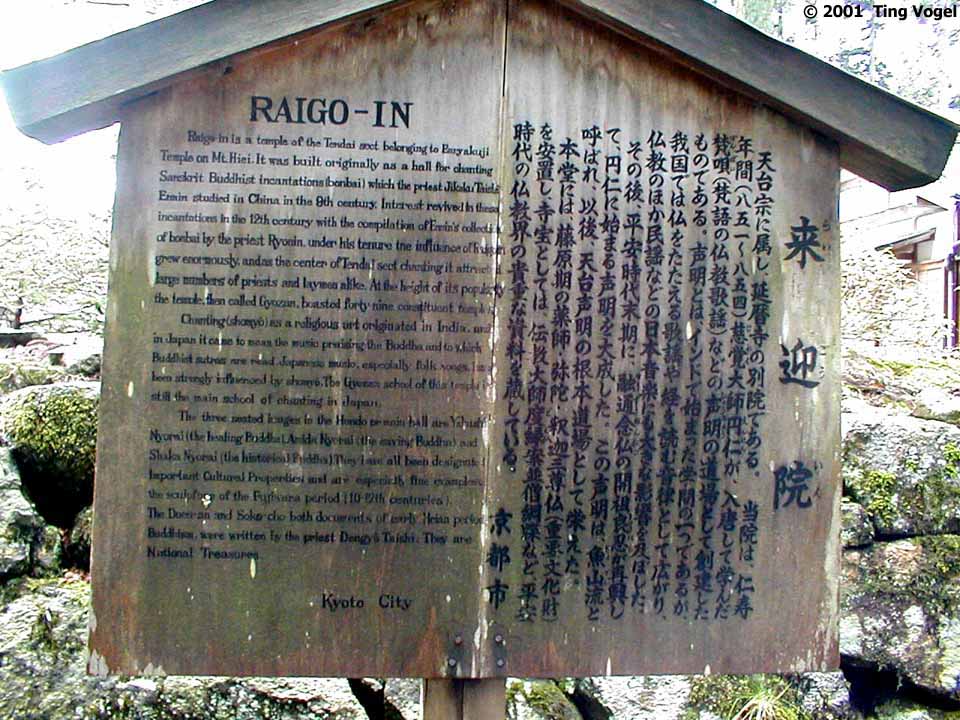 © 2001 Ting Vogel
RAIGO-IN
Raigo-in is a temple of the Tendai sect belonging to Enryakuji
Temple on Mt. Hiei. It was built originally as a hall for chanting
Sanskrit Buddhist incantations (bonbai) which the priest Jikaku Taishi
Ennin studied in China in the 9th century. Interest revived in these
incantations in the 12th century with the compilation of Ennin's collection
of bonbai by the priest Ryonin. under his tenure the influence of
grew enormously, and as the center of Tendai sect chanting it attracted
large numbers of priests and laymen alike. At the height of its popularity
the temple, then called Gyozan, boasted forty-nine constituent
Chanting (shomyo) as a religious art originated in India, and
in Japan it came to mean the music praising the Buddha and to which
Buddhist sutras are read. Japanese music, especially folk songs, has
been strongly influenced by shomyo. The Gyozan school of this temple is
still the main school of chanting in Japan.
The three seated images in the Hondo or main hall are Yakushi
Nyorai (the healing Buddha), Amida Nyorai (the saving Buddha) and
Shaka Nyorai (the historical Buddha). They have all been designated
Important Cultural Properties and are especially fine examples
the sculpture of the Fujiwara period (10-12th centuries).
The and both documents of early Heian period
Buddhism, were written by the priest Dengyo Taishi. They are
National Treasures.
Kyoto City
来迎院
らい いん
天台宗に属し、延暦寺の別院である。 当院は、仁寿
年間(八五一〜八五四)慈覚大師円仁が、入唐して学んだ
梵唄(梵語の仏教歌謡)などの声明の道場として創建した
ものである。声明とは、インドで始まった学問の一つであるが、
我国では仏をたたえる歌謡や経を読む音律として広がり、
仏教のほか民謡などの日本音楽にも大きな影響を及ぼした。
その後、平安時代末期に、融通念仏の開祖良忍が再興し
て、円仁に始まる声明を大成した。この声明は、魚山流と
呼ばれ、以後、天台声明の根本道場として栄えた。
本堂には、藤原期の薬師・弥陀・釈迦三尊仏(重要文化財)
を安置し、寺宝としては、伝教大師度縁案並僧綱牒など、平安
時代の仏教界の貴重な資料を蔵している。
京都市